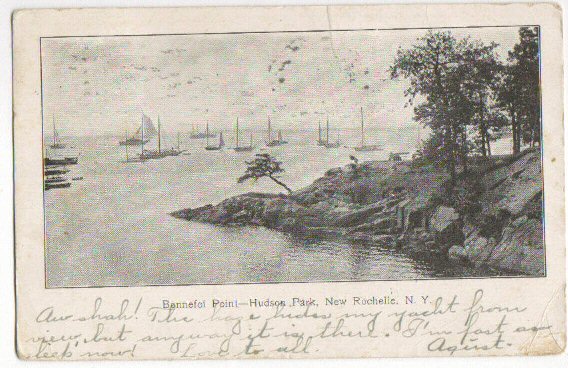 Bonnefoi Point—Hudson Park, New Rochelle, N. Y.
Aw shah! The haze hides my yacht from
view, but anyway it is there. I'm fast as
leep now! Love to all. Agust.